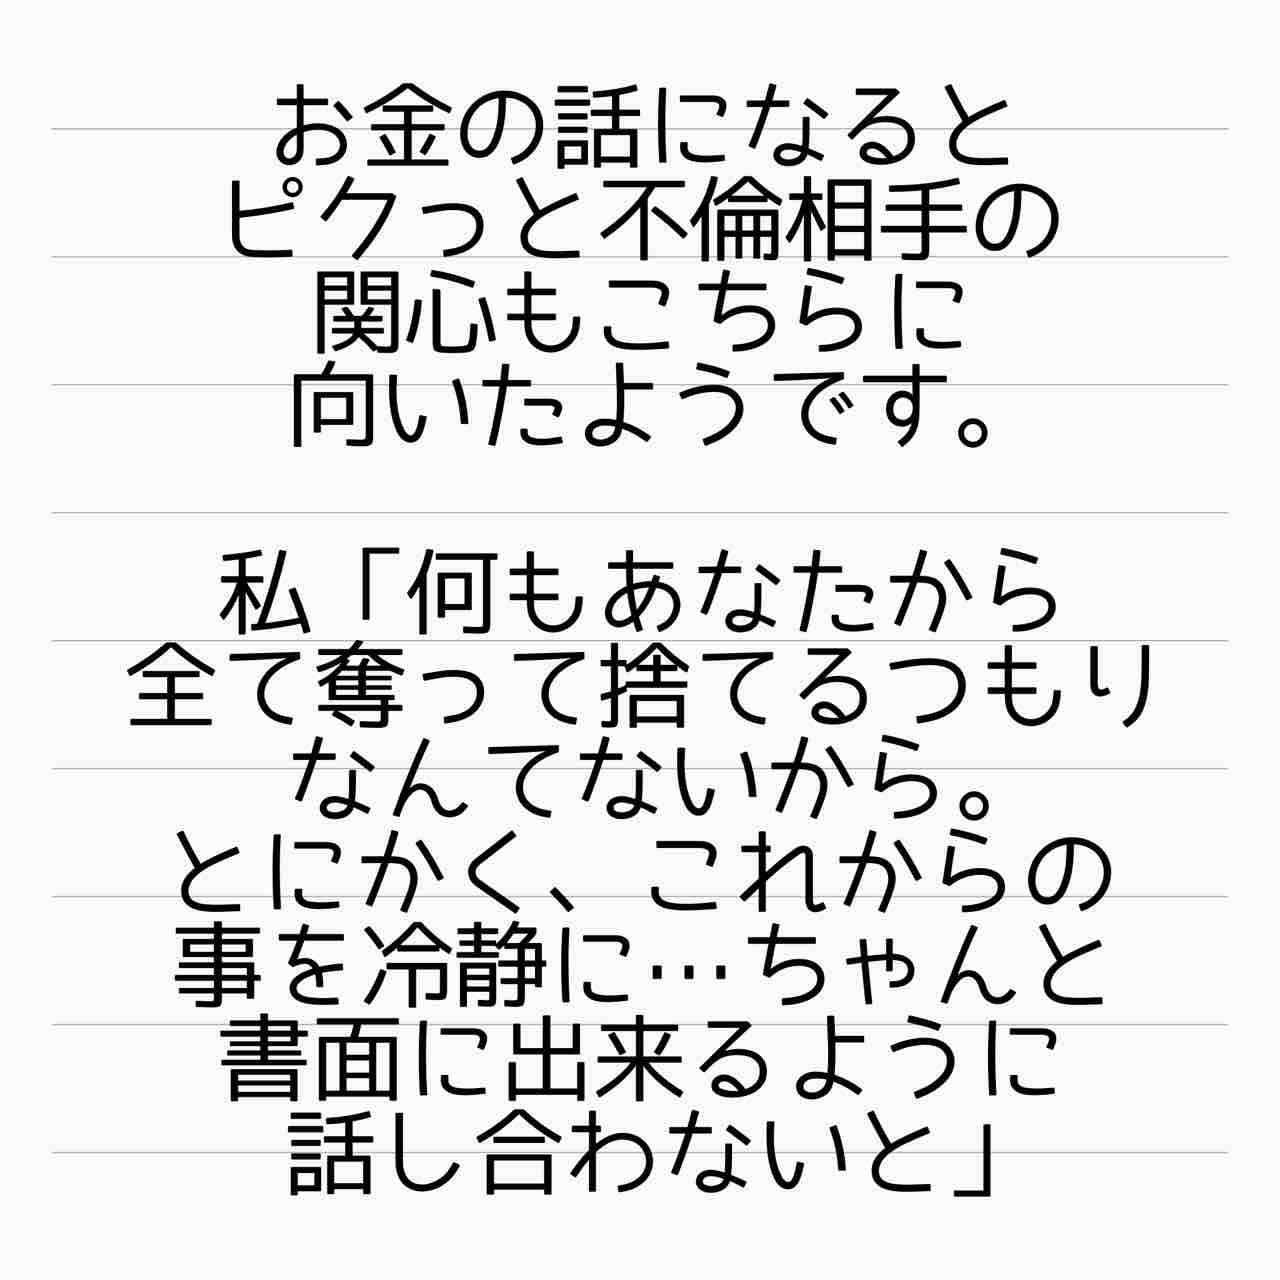 お金の話になると
ピクっと不倫相手の
関心もこちらに
向いたようです。
私「何もあなたから
全て奪って捨てるつもり
なんてないから。
とにかく、これからの
事を冷静に…ちゃんと
書面に出来るように
話し合わないと」